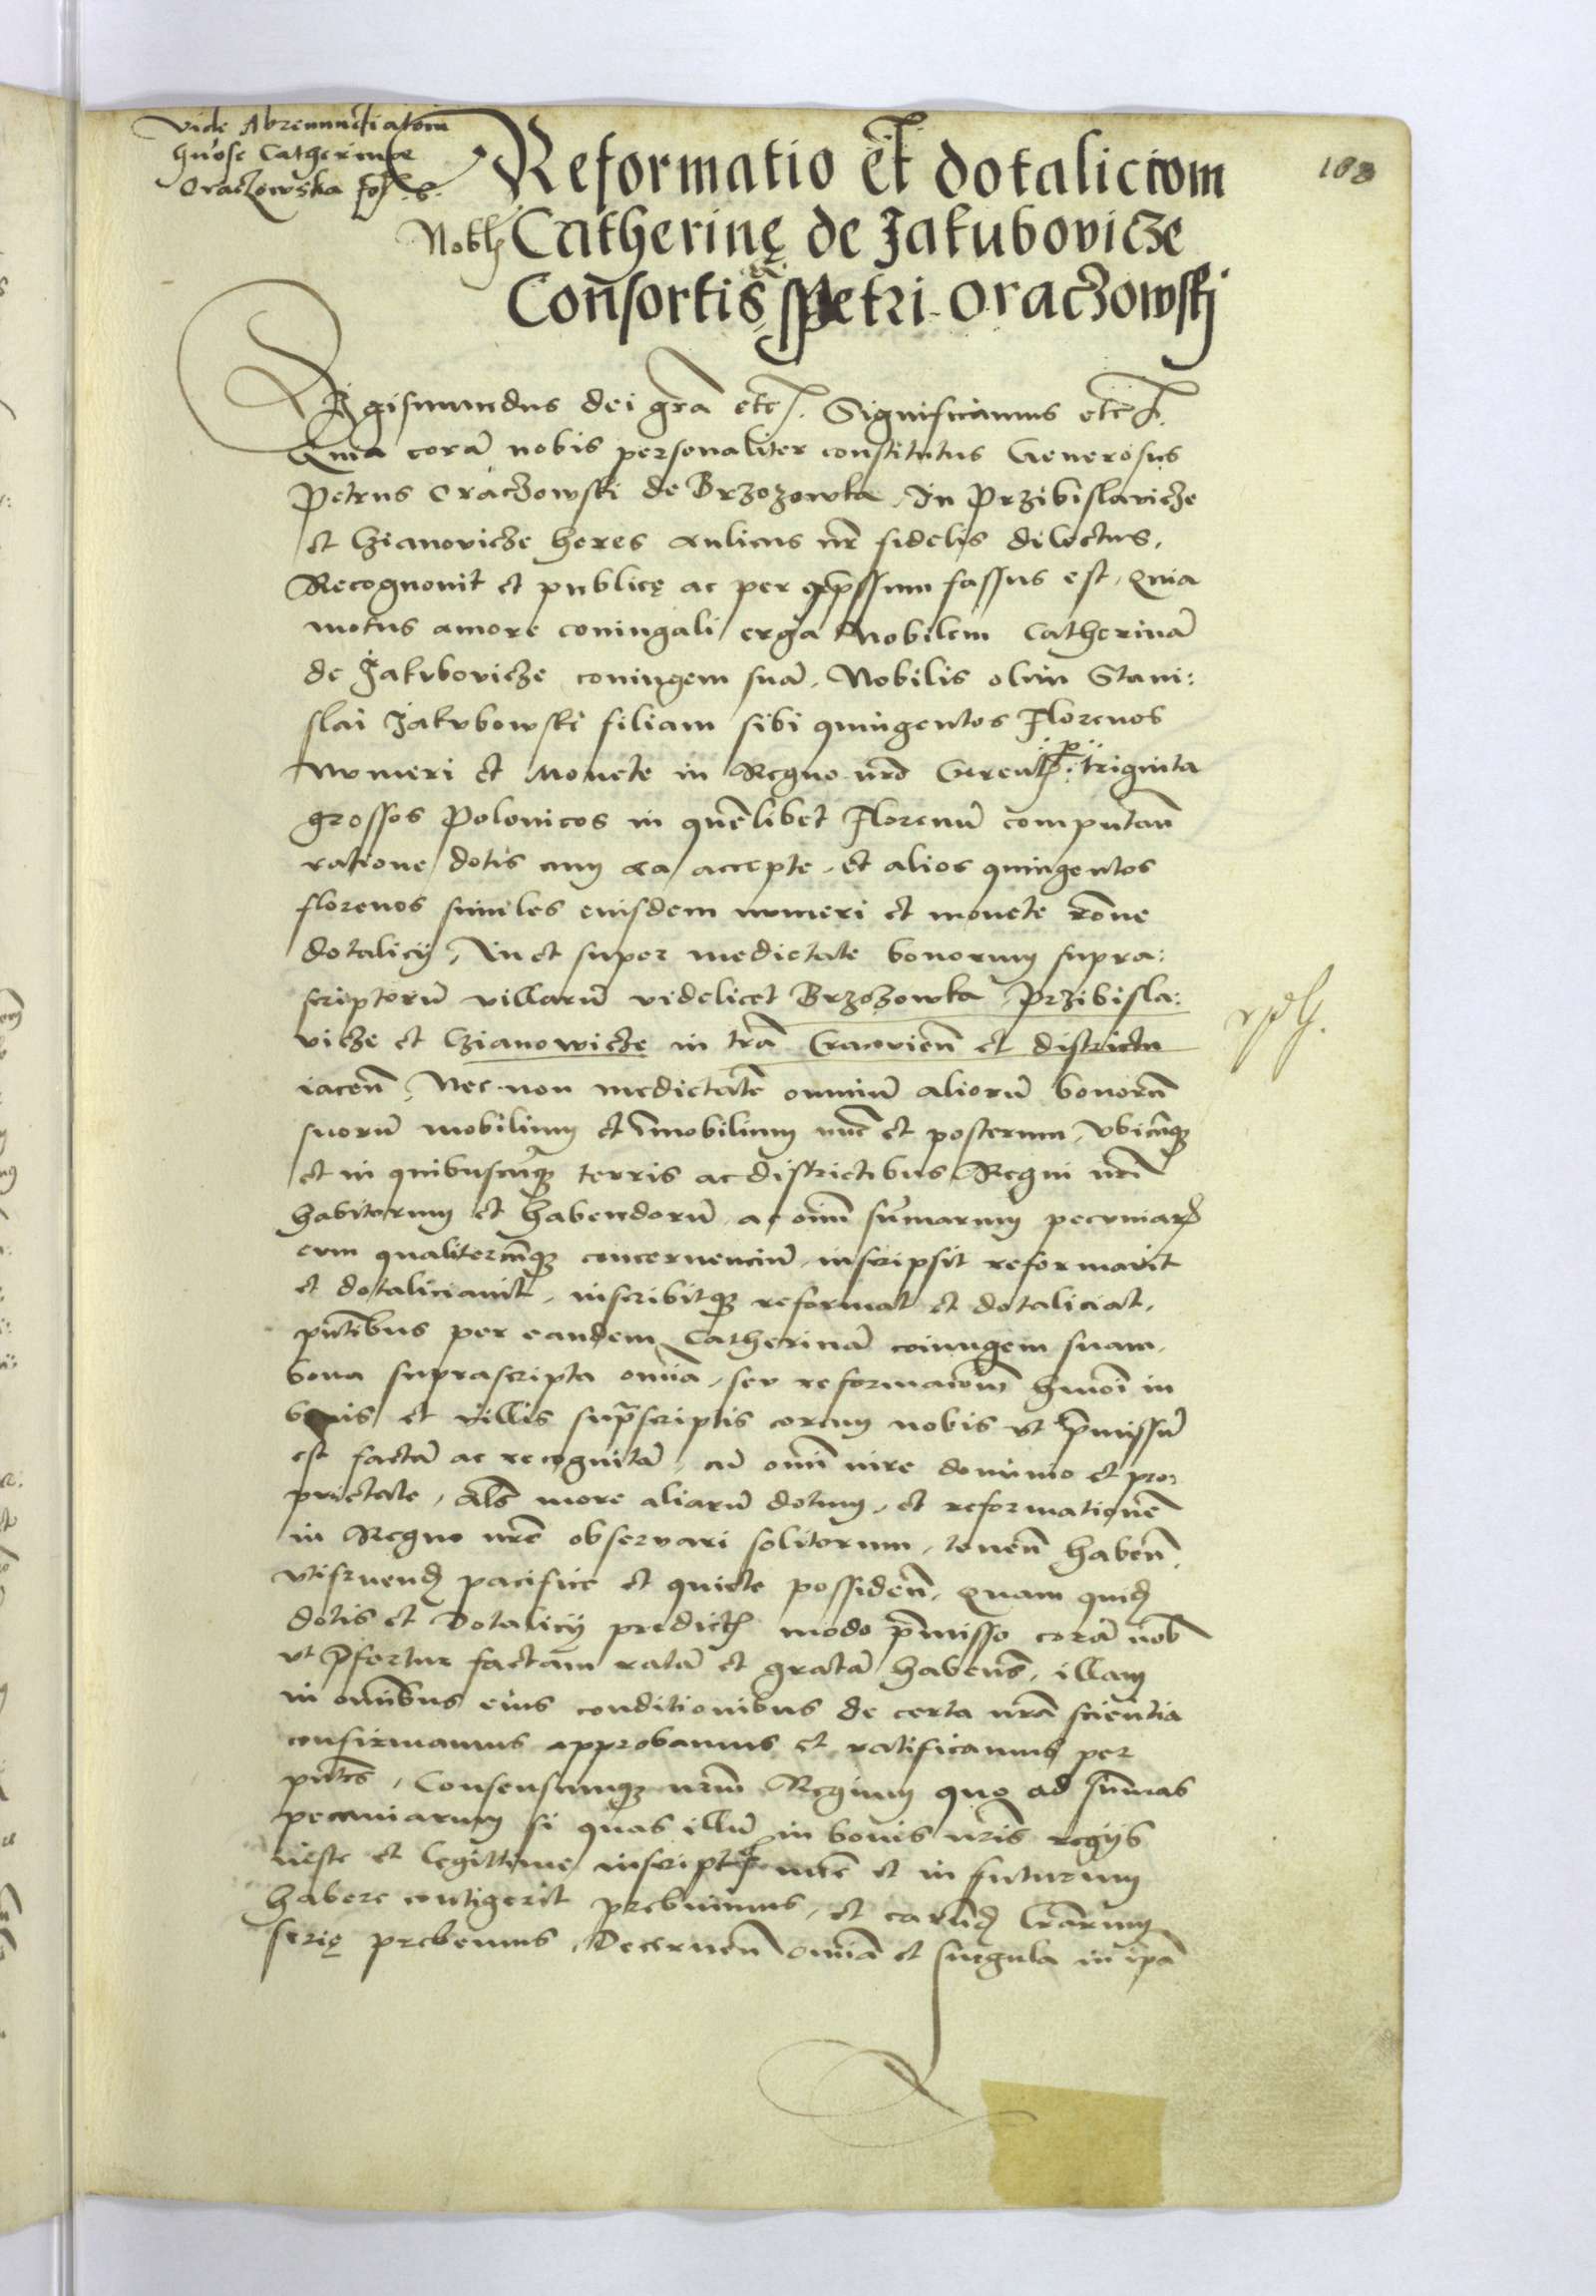 Vide Abrenunctiatiom
Gnose Catherinae
Oraczowska fol. 6.
188
Reformatio et dotalicium
Nobil Catherinę de Jakubovicze
Consortis Petri Oraczowskj
Sigismundus dei gra etc. Significamus etc.
Quia corā nobis personaliter constitutus Generosus
Petrus Oraczowski de Brzozowka, In Przibislavicze
et Czianovicze heres aulicus nr fidelis dilectus,
Recognovit et publicę ac per expssum fassus est, Quia
motus amore coniugali erga Nobilem Catherinā
de Jakubovicze coniugem suā, Nobilis olim Stani:
slai Jakubowski filiam sibi quingentos Florenos
Numeri et Monete in Regno nro triginta
grossos Polonicos in quēlibet Florenū computan̄
ratione dotis cum ea accepte, et alios quingentos
florenos similes eiusdem numeri et monete rōne
dotalicij, In et super medietate bonorum supra:
scriptorū villarū videlicet Brzozowka, Przibisla:
vicze et Czianowicze in trā Cracovien̄ et districtu
iacen̄, Nec non medietatē omniū aliorū bonorū
suorū mobilium et īmobilium nūc et posterum, vbicūqʒ
et in quibuscūqʒ terris ac districtibus Regni nri
habitorum et habendorū, ac oīm sūmarum pecuniarʒ
eum qualitercūqʒ concernenciū, inscripsit reformavit
et dotaliciavit, inscribitqʒ reformat et dotaliciat,
pn̄tibus per eandem Catherinā coniugem suam,
bona suprascripta om̄ia, seu reformaciōm hmōi in
bonis et villis sup̄scriptis coram nobis vt p̄missū
est factā ac recognitā, cū om̄i iure dominio et pro:
prietate, als more aliarū dotum, et reformationē
in Regno nrō observari solitorum, tenen̄ haben̄.
vtifruend pacifice et quiete possiden̄. Quam quid
dotis et Dotalicij predict modo p̄misso corā nob̄
vt p̄fertur factam ratā et gratā haben̄s, illam
in om̄ibus eius conditionibus de certa nrā scientia
confirmamus approbamus et ratificamus per
pn̄tes, Consensumqʒ nrum Regium quo ad sūmas
pecuniarum si quas illū in bonis nris regijs
iuste et legittime inscriptas nūc et in futurum
habere contigerit prebuimus, et earūd lrārum
serię prebemus, Decernen̄ om̄ia et singula in ipā